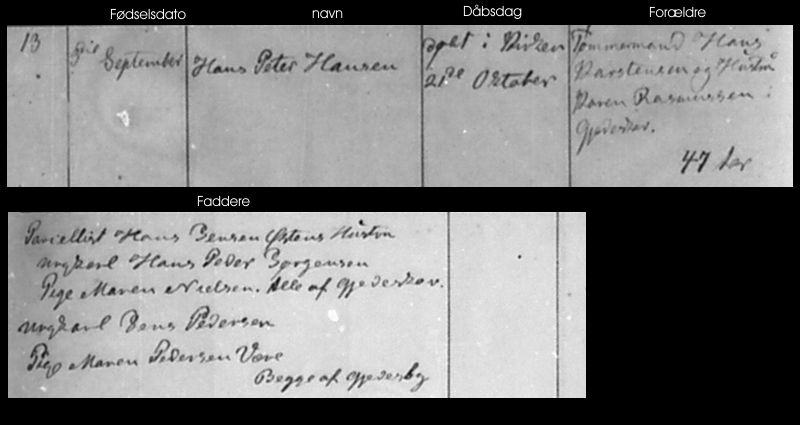 Fødselsdato navn Dåbsdag Forældre
13
September
Hans Peter Hansen
døbt i Kirken
21de Oktober
Tømmermand Hans
Karstensen og Hustru
Karen Rasmussen i
Gjedeskov.
47
Faddere
Parcellist Hans Jensen Østens Hustru
ungkarl Hans Peder Jørgensen
Pige Maren Nielsen. Alle af Gjedeskov.
ungkarl Jens Pedersen
Pige Maren Pedersen
Begge af Gjedesby